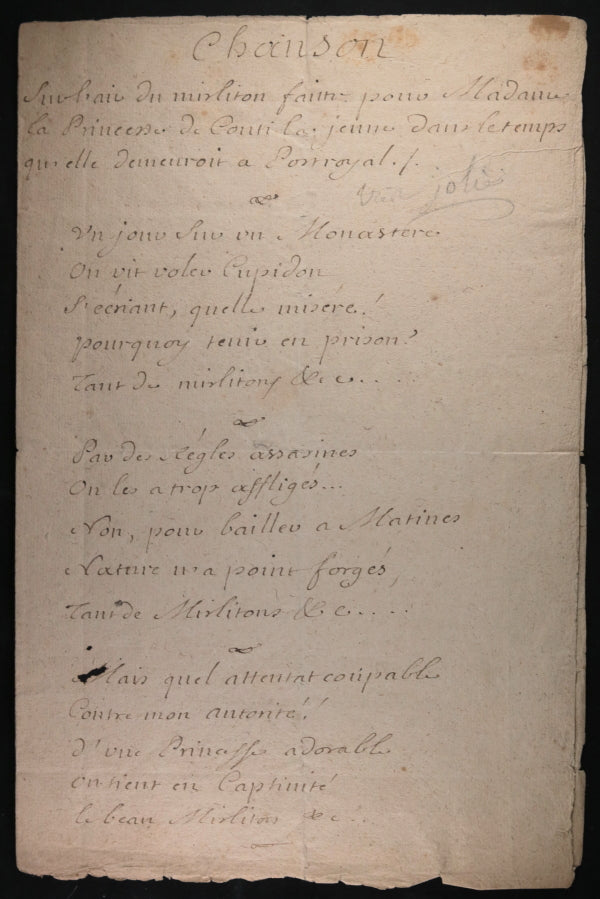 Chanson
Sur l'air du mirliton faitte pour Madame
la Princesse de Conti la jeune dans le temps
qu'elle demeuroit a Portroyal ./.
très jolie
Un jour sur un Monastere
On vit voler Cupidon
S'écriant, quelle misére!
pourquoy tenir en prison?
Tant de mirlitons &c....
Par des Régles assasines
On les a trop affligés...
Non, pour bailler a Matines
Nature n'a point forgés,
Tant de Mirlitons &c....
Mais quel attentat coupable
Contre mon autorité!
D'une Princesse adorable
On tient en Captivité
le beau Mirliton &c...